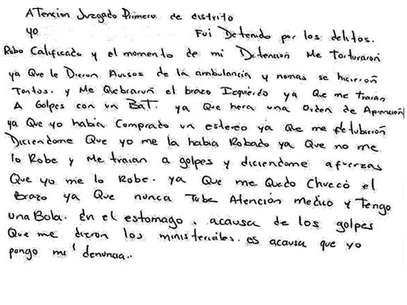 Atencion Juzgado Primero de distrito
yo Fui Detenido por los delitos.
Robo Calificado y el momento de mi Detencion Me Torturaron
ya Que le Dieron Avisos de la ambulancia y nomas se hicieron
Tontos. y Me Quebraron el brazo Izquierdo ya Que me traian
A Golpes con un Bat. ya Que hera una Orden de Aprencion
ya Que yo habia Comprado un estereo ya Que me
Diciendome Que yo me la habia Robado ya Que no me
lo Robe y Me traian a golpes y diciendome afuerzas
Que yo me lo Robe. ya Que me Quedo Chueco el
Brazo ya Que nunca Tube Atención medico y Tengo
una Bola. En el estomago. acausa de los golpes
Que me dieron los ministeriales. es acausa que yo
pongo mi denuncia..